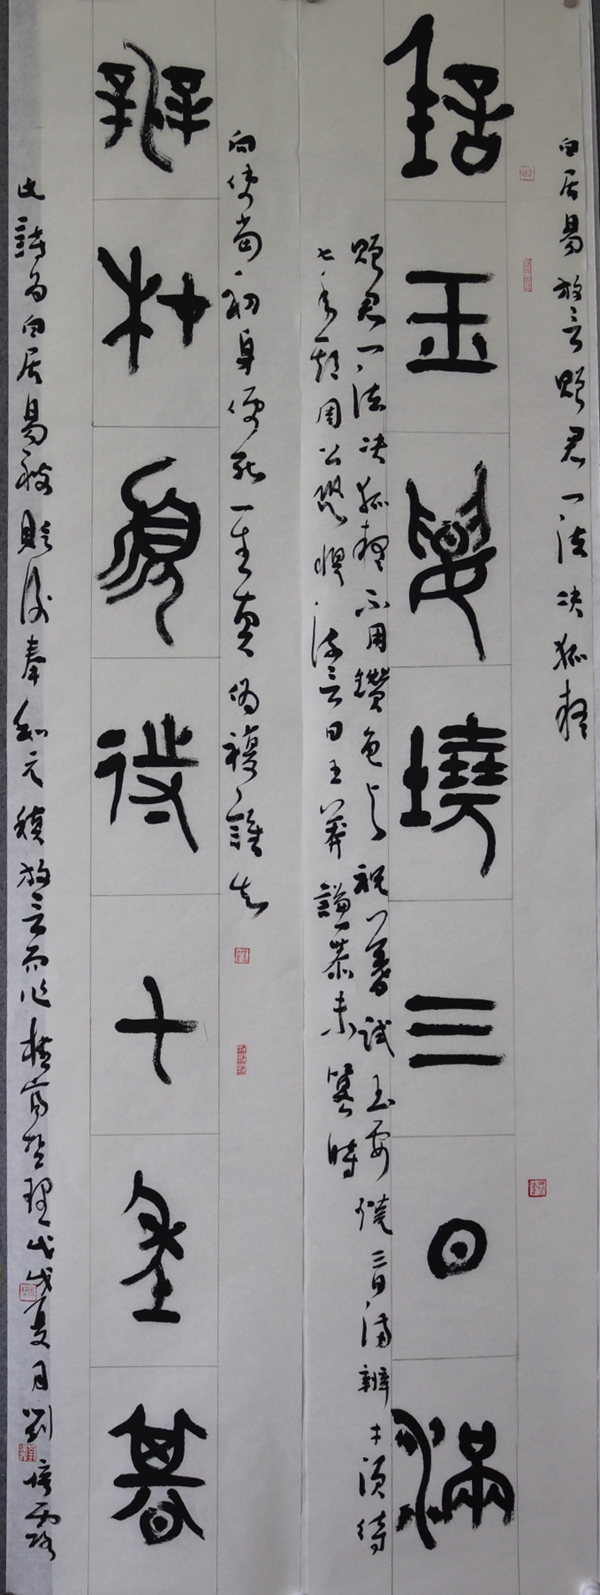 白居易放言贈君一法決狐疑
試玉要燒三日滿
贈君一法決狐疑不用鑽龜與祝蓍試玉要燒三日滿辨才須待
七年期周公恐懼流言日王莽謙恭未篡時
向使當初身便死一生真偽複誰知
辨材須待七年期
此詩為白居易被貶後奉和元稹放言而作極富哲理戊戌夏月劉培露